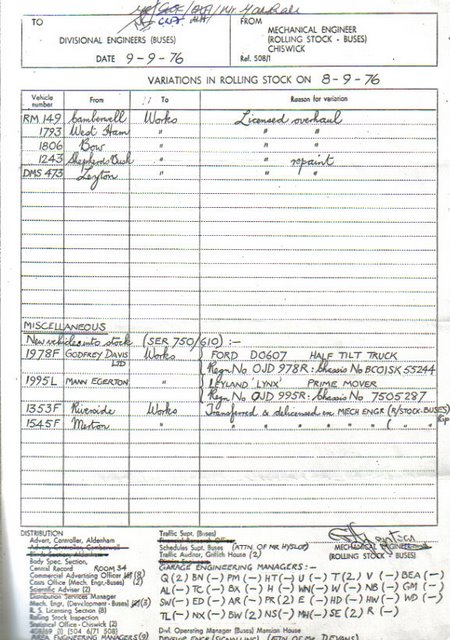 TO
DIVISIONAL ENGINEERS (BUSES)
DATE 9-9-76
FROM
MECHANICAL ENGINEER
(ROLLING STOCK - BUSES)
CHISWICK
Ref. 508/1
VARIATIONS IN ROLLING STOCK ON 8-9-76
Vehicle number From To Reason for variation
RM 149 Camberwell Works Licensed overhaul
1793 West Ham " " "
1806 Bow " " "
1243 Shepherds Bush " " repaint
DMS 473 Leyton " " "
MISCELLANEOUS
New vehicles into stock (SER 750/610) :-
1978F GODFREY DAVIS LTD Works FORD D0607 HALF TILT TRUCK
Regn No OJD 978R : Chassis No BC01SK 55244
1995L MANN EGERTON " LEYLAND 'LYNX' PRIME MOVER
Regn No OJD 995R : Chassis No 7505287
1353F Riverside Works Transferred & delicensed in MECH ENGR (R/STOCK-BUSES)
1545F Merton " " " " " " ( " "
DISTRIBUTION
Advert. Controller, Aldenham
Advert. Controller, Camberwell
Body Spec. Section,
Central Record ROOM 34
Commercial Advertising Officer (8)
Costs Office (Mech. Engr.-Buses) (2)
Scientific Adviser (2)
Distribution Services Manager
Mech. Engr. (Development - Buses) (5)
R. S. Licensing Section (8)
Rolling Stock Inspection
Statistical Office - Chiswick (2)
AREA ENGINEERING MANAGERS (9)
Traffic Supt. (Buses)
Schedules Supt. Buses (ATTN OF MR HYSLOP)
Traffic Auditor, Griffith House (2)
MECHANICAL ENGINEER
(ROLLING STOCK - BUSES)
GARAGE ENGINEERING MANAGERS :-
Q (2) BN (-) PM (-) HT (-) U (-) T (2) V (-) BEA (-)
AL (-) TC (-) BX (-) H (-) WN (-) W (-) NB (-) GM (-)
SW (-) ED (-) AR (-) PK (2) E (-) HD (-) HW (-) WD (-)
TL (-) NX (-) BW (2) NS (-) MH (-) SE (2) R (-)
Divl. Operating Manager (Buses) Mansion House